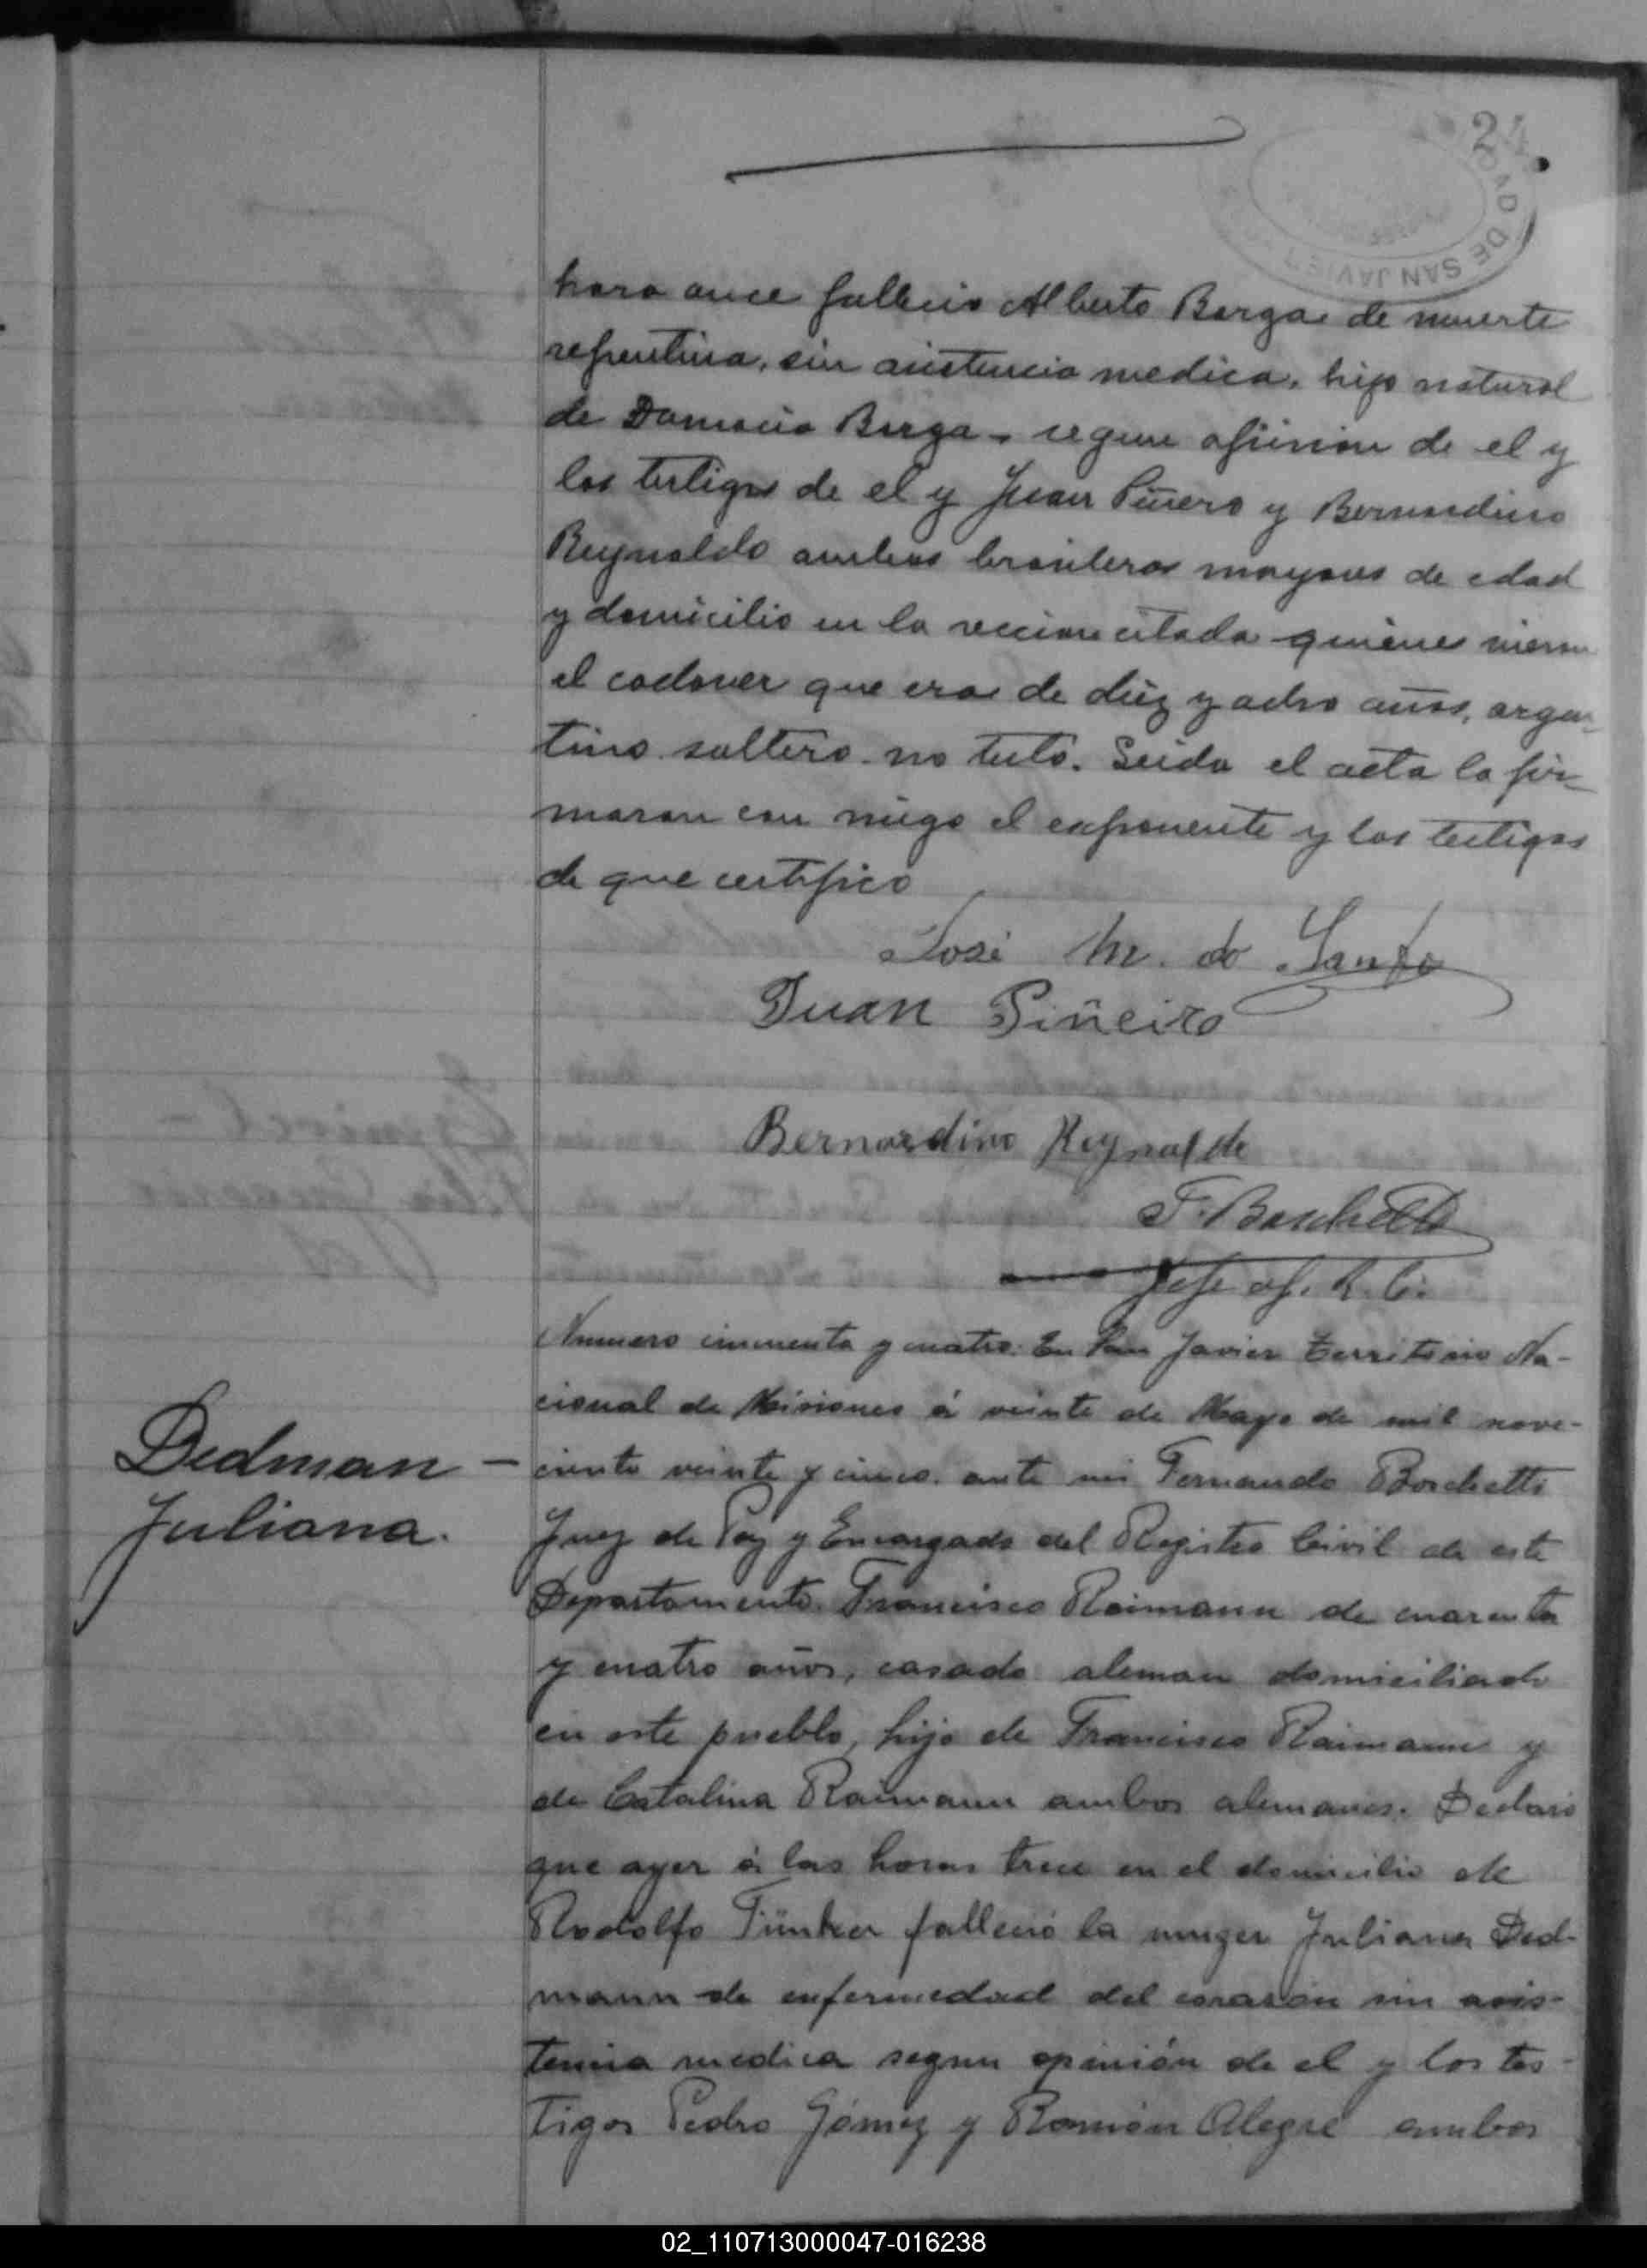 24
DAD DE SAN JAVIER
hora once fallecio Alberto Borga de muerte
repentina, sin asistencia medica, hijo natural
de Borga segun opinion de el y
los testigos de el y Juan Piñero y Bernardino
Reynaldo ambos brasileros mayores de edad
y domicilio en la seccion citada quienes vieron
el cadaver que era de diez y ocho años, argen-
tino soltero no testó. Leida el acta la fir-
maron con migo el exponente y los testigos
de que certifico
José M. do Santo
Juan Piñeiro
Bernardino Reynaldo
F. Boschetti
Jefe of. R. C.
Dedman
Juliana.
Numero cincuenta y cuatro. En San Javier Territorio Na-
cional de Misiones á veinte de Mayo de mil nove-
ciento veinte y cinco. ante mi Fernando Boschetti
Juez de Paz y Encargado del Registro Civil de este
Departamento. Francisco Raimann de cuarenta
y cuatro años, casado aleman domiciliado
en este pueblo, hijo de Francisco Raimann y
de Catalina Raimann ambos alemanes. Declaró
que ayer á las horas trece en el domicilio de
Rodolfo Fünker falleció la muger Juliana Ded-
mann de enfermedad del corazón sin asis-
tencia medica segun opinión de el y los tes-
tigos Pedro Gómez y Ramón Alegre ambos
02_110713000047-016238